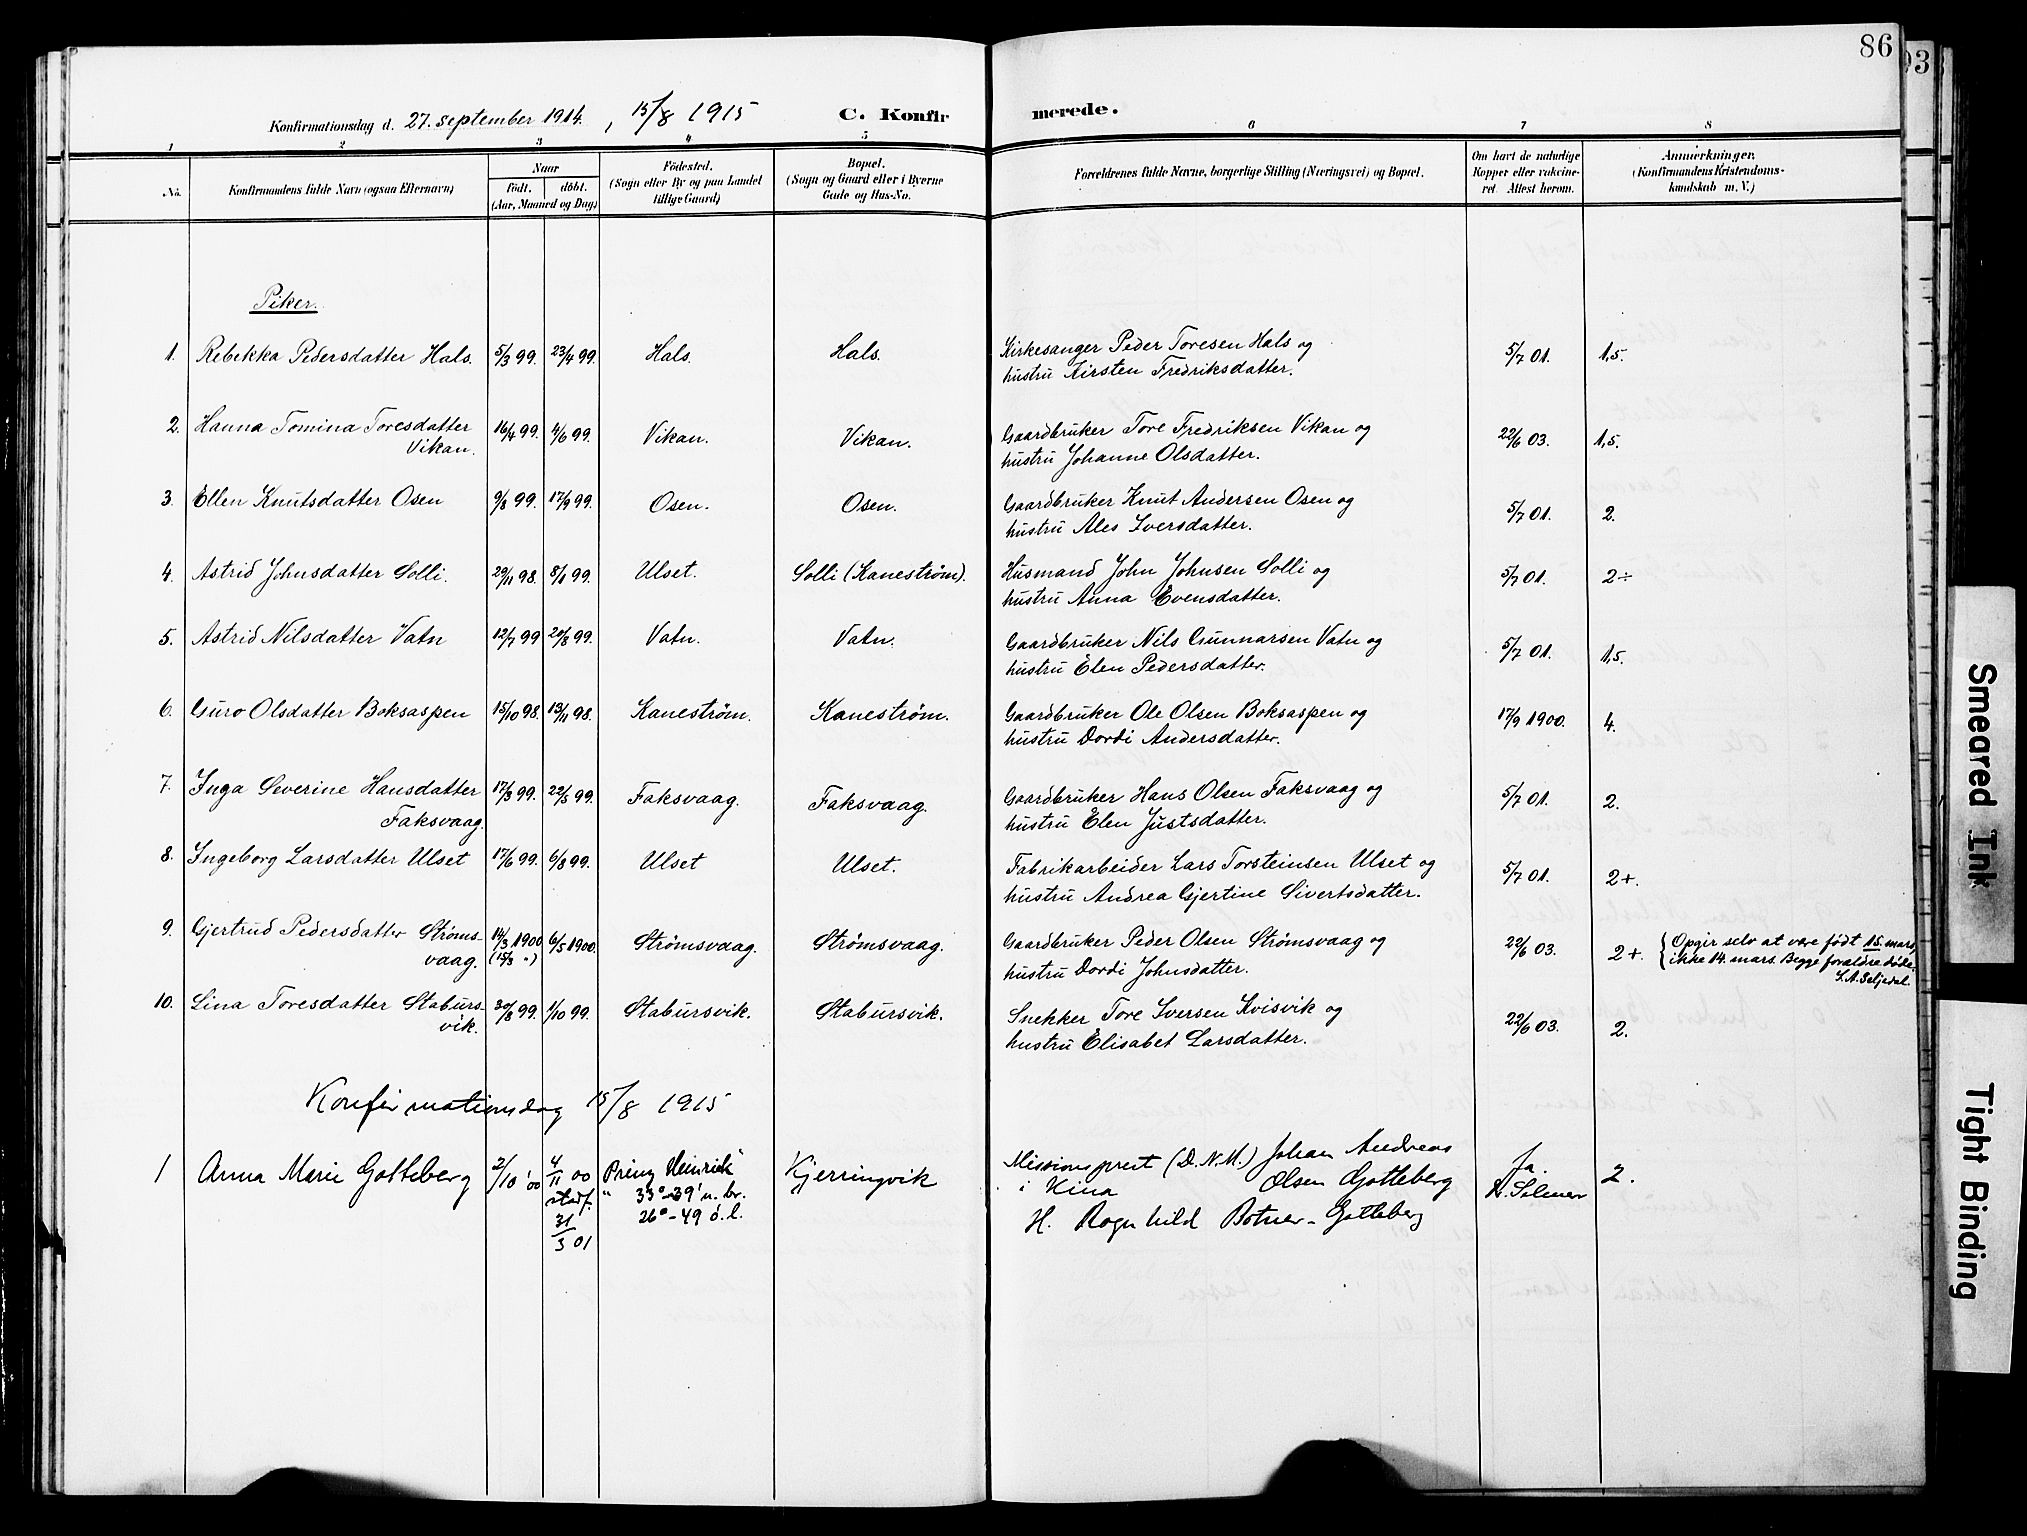 86
93
Konfirmationsdag d. 27. september 1914. , 15/8 1915 C. Konfirmerede.
1 2 3 4 5 6 7 8
No. Konfirmandens fulde Navn (ogsaa Efternavn) Naar født. døbt. (Aar, Maaned og Dag) Födested. (Sogn eller By og paa Landet tillige Gaard) Bopæl. (Sogn og Gaard eller i Byerne Gade og Hus-No. Forældrenes fulde Navne, borgerlige Stilling (Næringsvei) og Bopæl. Om havt de naturlige Kopper eller vakcineret. Attest herom. Anmærkninger, (Konfirmandens Kristendomskundskab m. V.)
Piker.
1. Rebekka Pedersdatter Hals. 5/3 99. 23/4 99. Hals. Hals. Kirkesanger Peder Toresen Hals og 5/7 01. 1,5.
hustru Kirsten Fredriksdatter.
2. Hanna Tomina Toresdatter 16/4 99. 4/6 99. Vikan. Vikan. Gaardbruker Tore Fredriksen Vikan og 22/6 03. 1,5.
Vikan. hustru Johanne Olsdatter.
3. Ellen Knutsdatter Osen 9/8 99. 17/9 99. Osen. Osen. Gaardbruker Knut Andersen Osen og 5/7 01. 2.
hustru Ales Iversdatter.
4. Astrid Johnsdatter Solli. 29/11 98. 8/1 99. Ulset. Solli (Kanestrøm). Husmand John Johnsen Solli og 5/7 01. 2÷
hustru Anna Evensdatter.
5. Astrid Nilsdatter Vatn 12/7 99 20/8 99. Vatn. Vatn. Gaardbruker Nils Gunnarsen Vatn og 5/7 01. 1,5.
hustru Elen Pedersdatter.
6. Guro Olsdatter Boksaspen 15/10 98. 13/11 98. Kanestrøm. Kanestrøm. Gaardbruker Ole Olsen Boksaspen og 17/9 1900. 4.
hustru Dordi Andersdatter.
7. Inga Severine Hansdatter 17/3 99. 22/5 99. Faksvaag. Faksvaag. Gaardbruker Hans Olsen Faksvaag og 5/7 01. 2.
Faksvaag. hustru Elen Justsdatter.
8. Ingeborg Larsdatter Ulset 17/6 99. 6/8 99. Ulset Ulset. Fabrikarbeider Lars Torsteinsen Ulset og 5/7 01. 2+.
hustru Andrea Gjertine Sivertsdatter.
9. Gjertrud Pedersdatter Strøms- 14/3 1900 6/5 1900. Strømsvaag. Strømsvaag. Gaardbruker Peder Olsen Strømsvaag og 22/6 03. 2+. { Opgir selv at være født 15. mars,
vaag. (15/3 ") hustru Dordi Johnsdatter. ikke 14. mars. Begge forældre døde.
S.A. Seljedal.
10. Lina Toresdatter Stabursvik. 30/8 99. 1/10 99. Stabursvik. Stabursvik. Snekker Tore Iversen Kvisvik og 22/6 03. 2.
hustru Elisabet Larsdatter.
Konfirmationsdag 15/8 1915
1 Anna Marie Gotteberg 2/10 '00 4/11 00 "Prinz Heinrich" Kjerringvik Missionsprest (D.N.M.) Johan Andreas Ja. 2.
stadf. 33°-39' n. br. i Kina Olsen Gotteberg
31/3 01 26°-49 ö. l. H. Ragnhild Botner-Gotteberg
Smeared Ink
Tight Binding